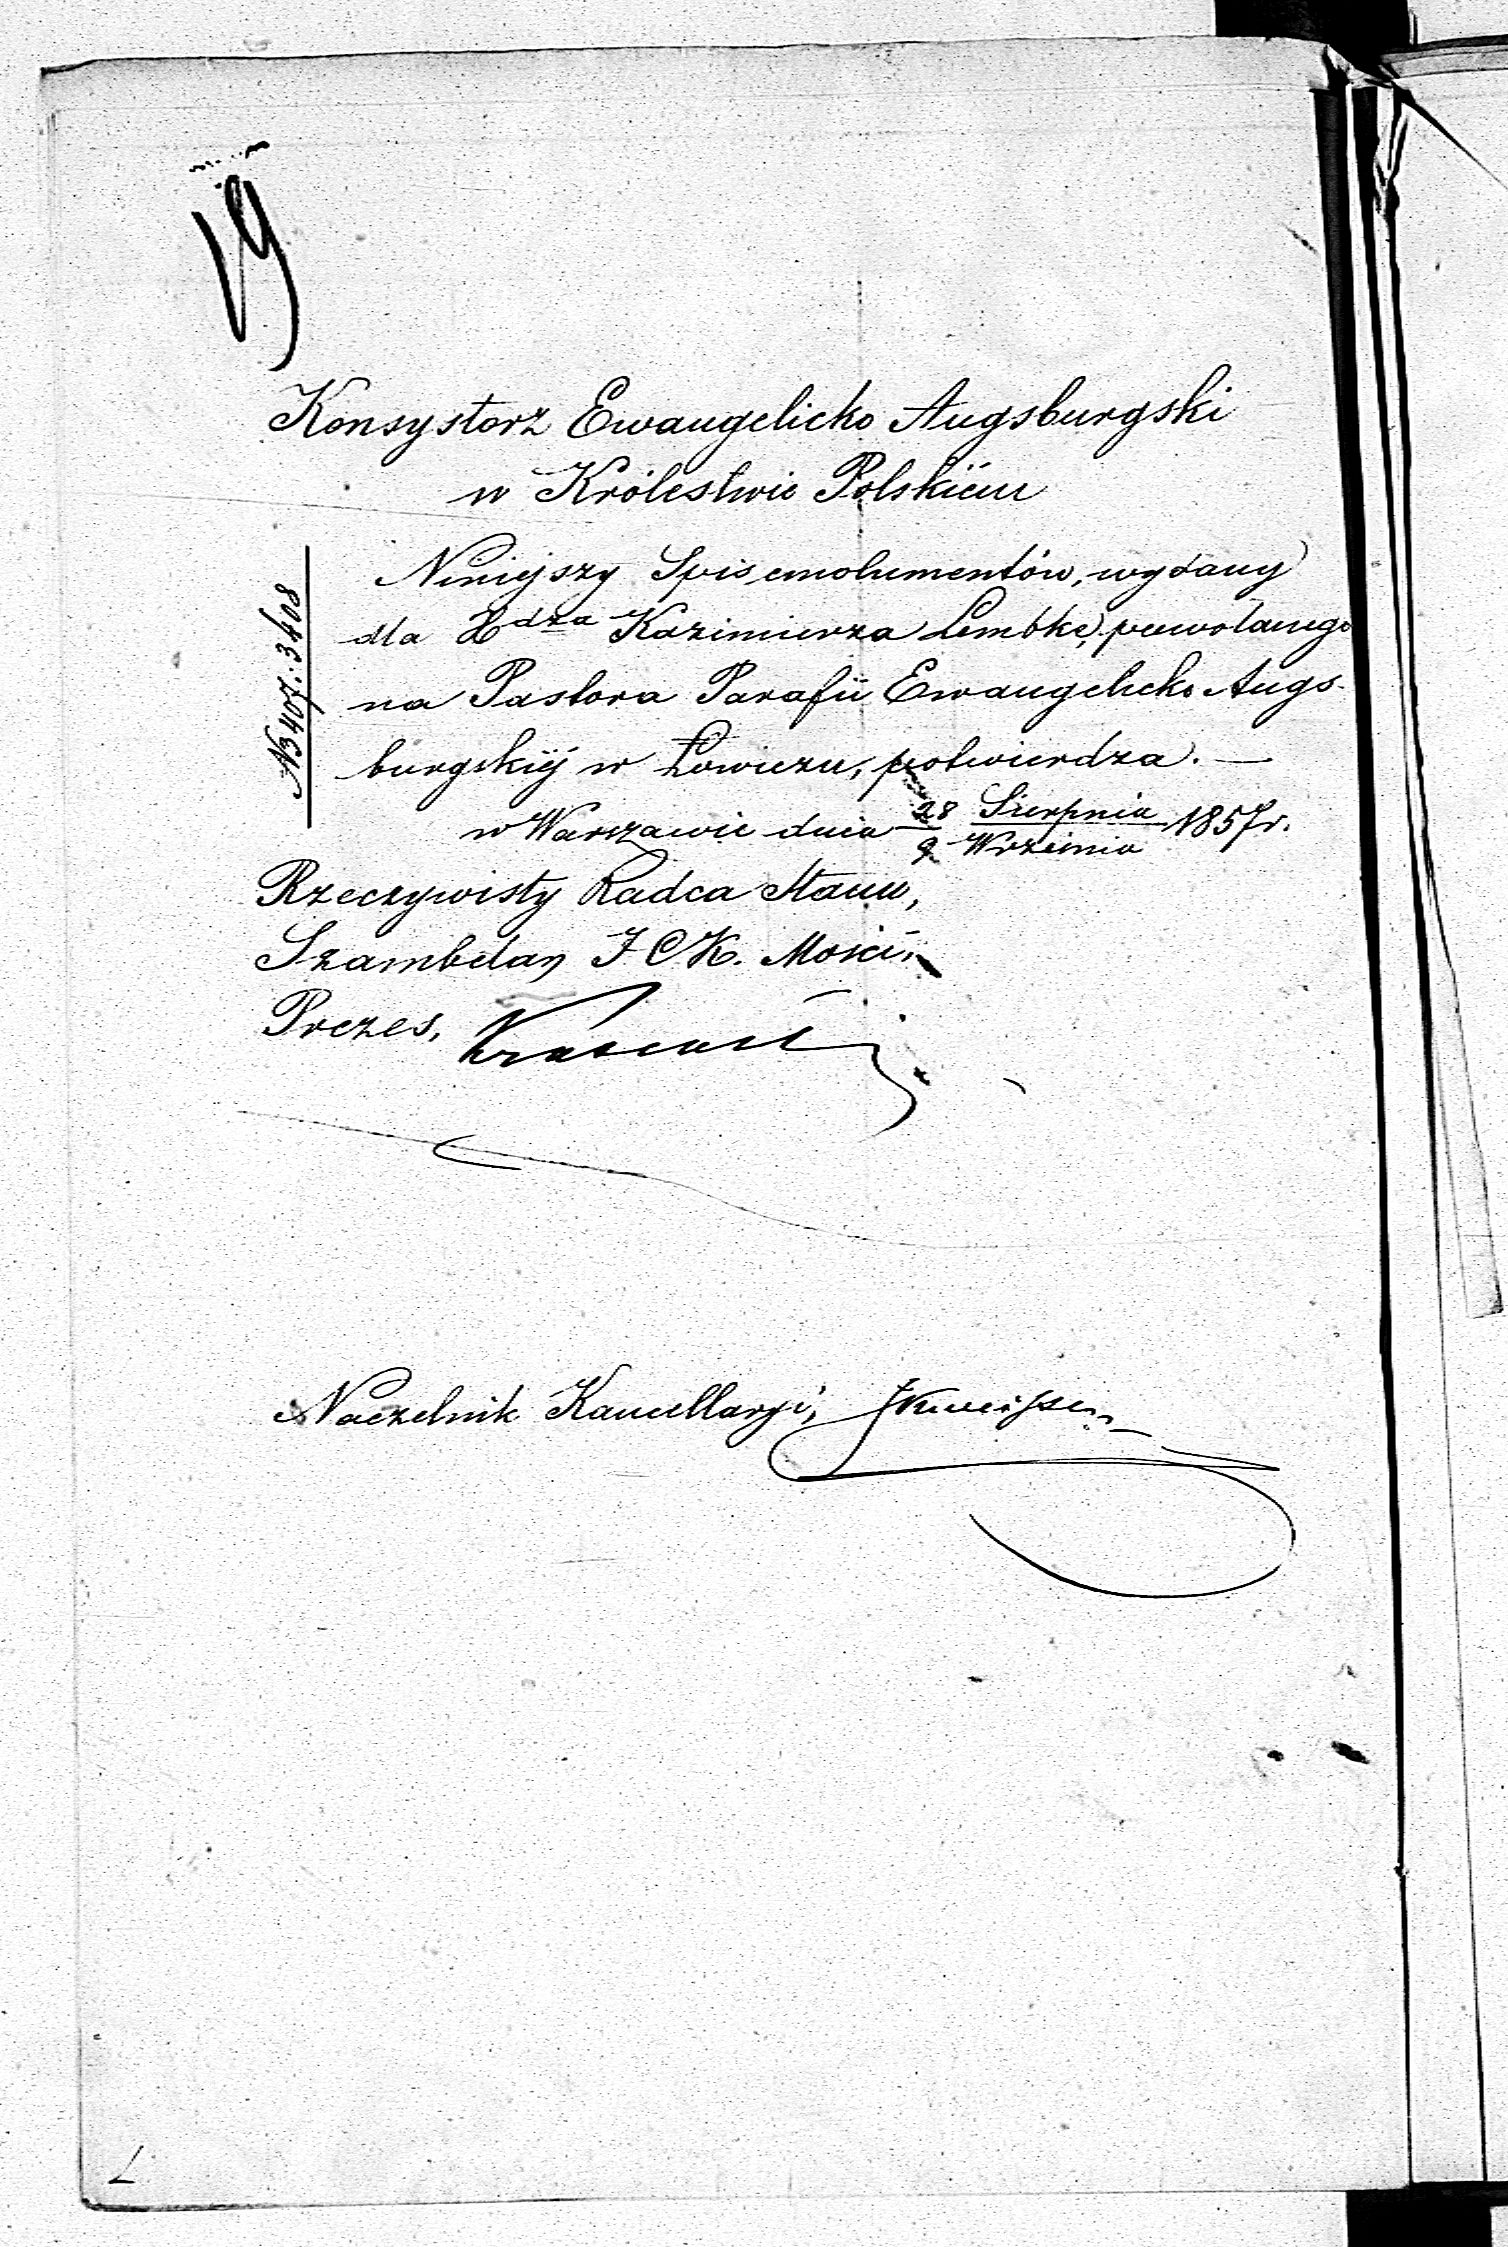 19
Konsystorz Ewangelicko Augsburgski
w Królestwie Polskiem
N 3407: 3408
Niniejszy Spis emolumentów, wydany
dla Xdza Kazimierza Lembke, powołanego
na Pastora Parafii Ewangelicko Augs-
burgskiéj w Łowiczu, potwierdza. —
w Warszawie dnia 28 Sierpnia / 9 Września 1857 r.
Rzeczywisty Radca Stanu,
Szambelan J C K. Mości,
Prezes,
Naczelnik Kancellaryi,